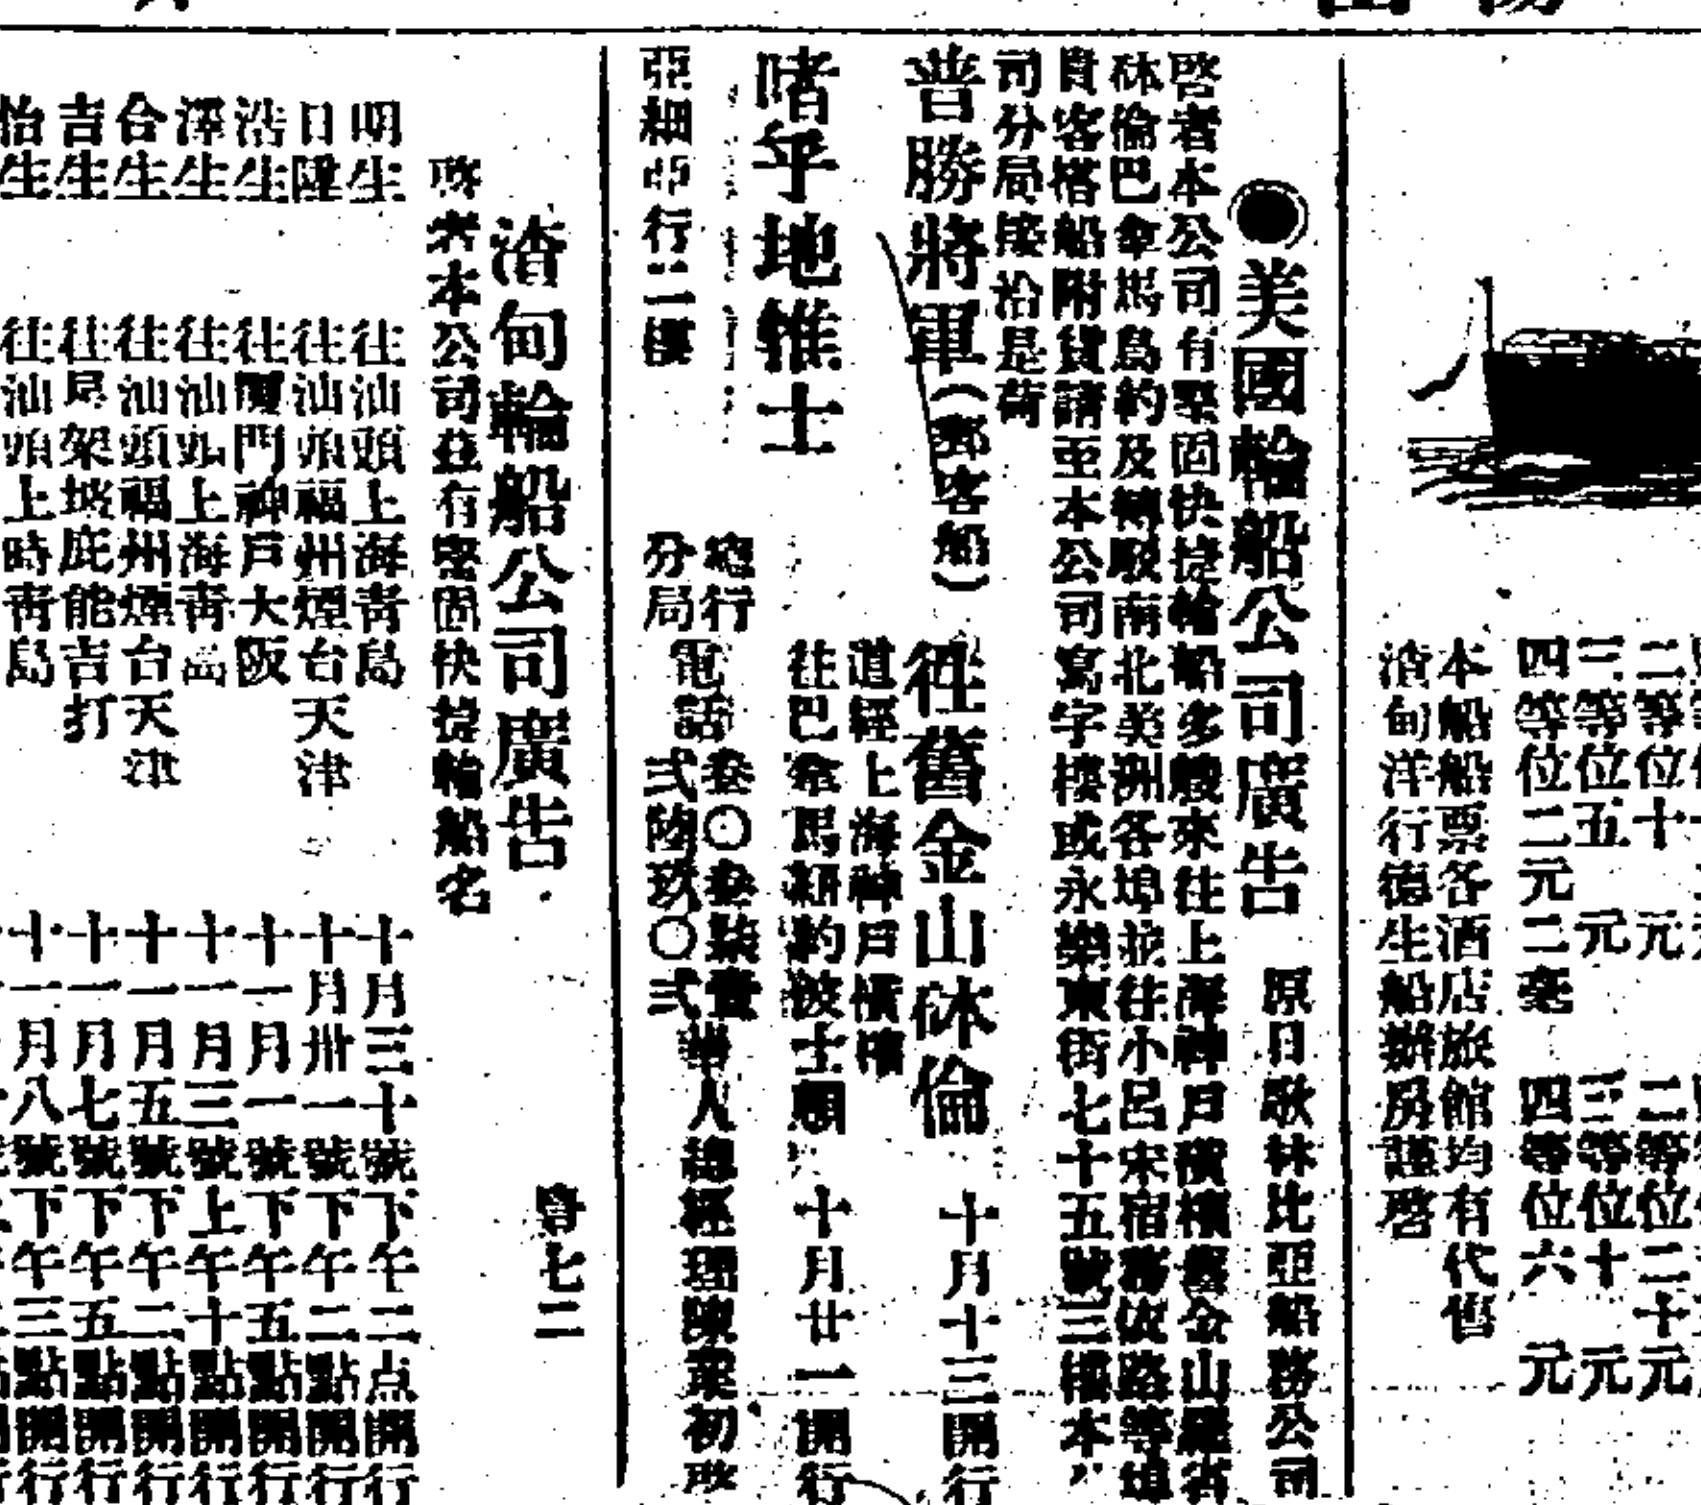 二等位十元 二等位二十元
三等位五元 三等位十元
四等位二元二毫 四等位六元
本船船票各酒店旅館均有代售
渣甸洋行德生船辦房謹啓
●美國輪船公司廣告 原日歌林比亞船務公司
啓者本公司有堅固快捷輪船多艘來往上海神戶橫檳舊金山羅省
砵倫巴拿馬鳥約及轉駁南北美洲各埠並往小呂宋宿務 路等埠
貴客搭船附貨請至本公司寫字樓或永樂東街七十五號三樓本公
司分局接洽是荷
普勝將軍(郵客船) 往舊金山砵倫 十月十三開行
道經上海神戶橫檳
啫乎地惟士 往巴拿馬紐約波士頓 十月廿一開行
總行 電話叁〇叁柒壹
亞細亞行二樓 分局 弍陸玖〇弍 華人總經理陳 初啟
渣甸輪船公司廣告 七二
啓者本公司並有堅固快捷輪船名
明生 往汕頭上海青島 十月三十號下午二点開行
日陞 往汕頭福州煙台天津 十月卅一號下午二點開行
浩生 往廈門神戶大阪 十一月一號下午五點開行
澤生 往汕頭上海青島 十一月三號上午十點開行
合生 往汕頭福州煙台天津 十一月五號下午二點開行
吉生 往星架坡庇能吉打 十一月七號下午五點開行
怡生 往汕頭上時青島 十一月八號下午三點開行